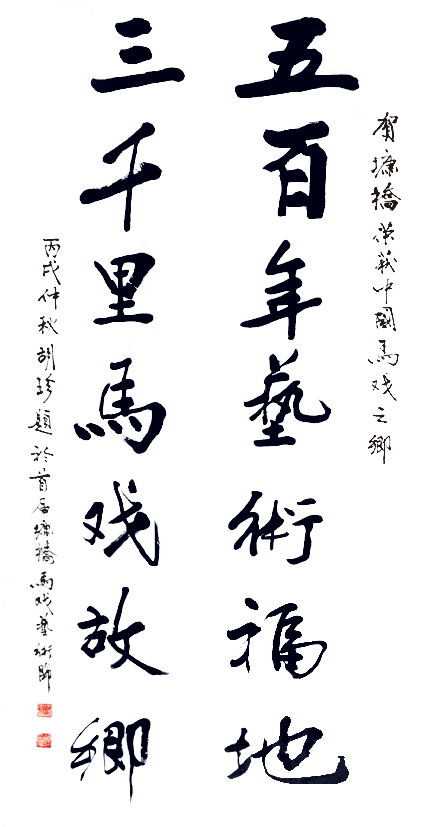 賀墉橋荣获中國馬戏之鄉
五百年藝術福地
三千里馬戏故鄉
丙戌仲秋胡珍題於首届墉橋馬戏藝術節